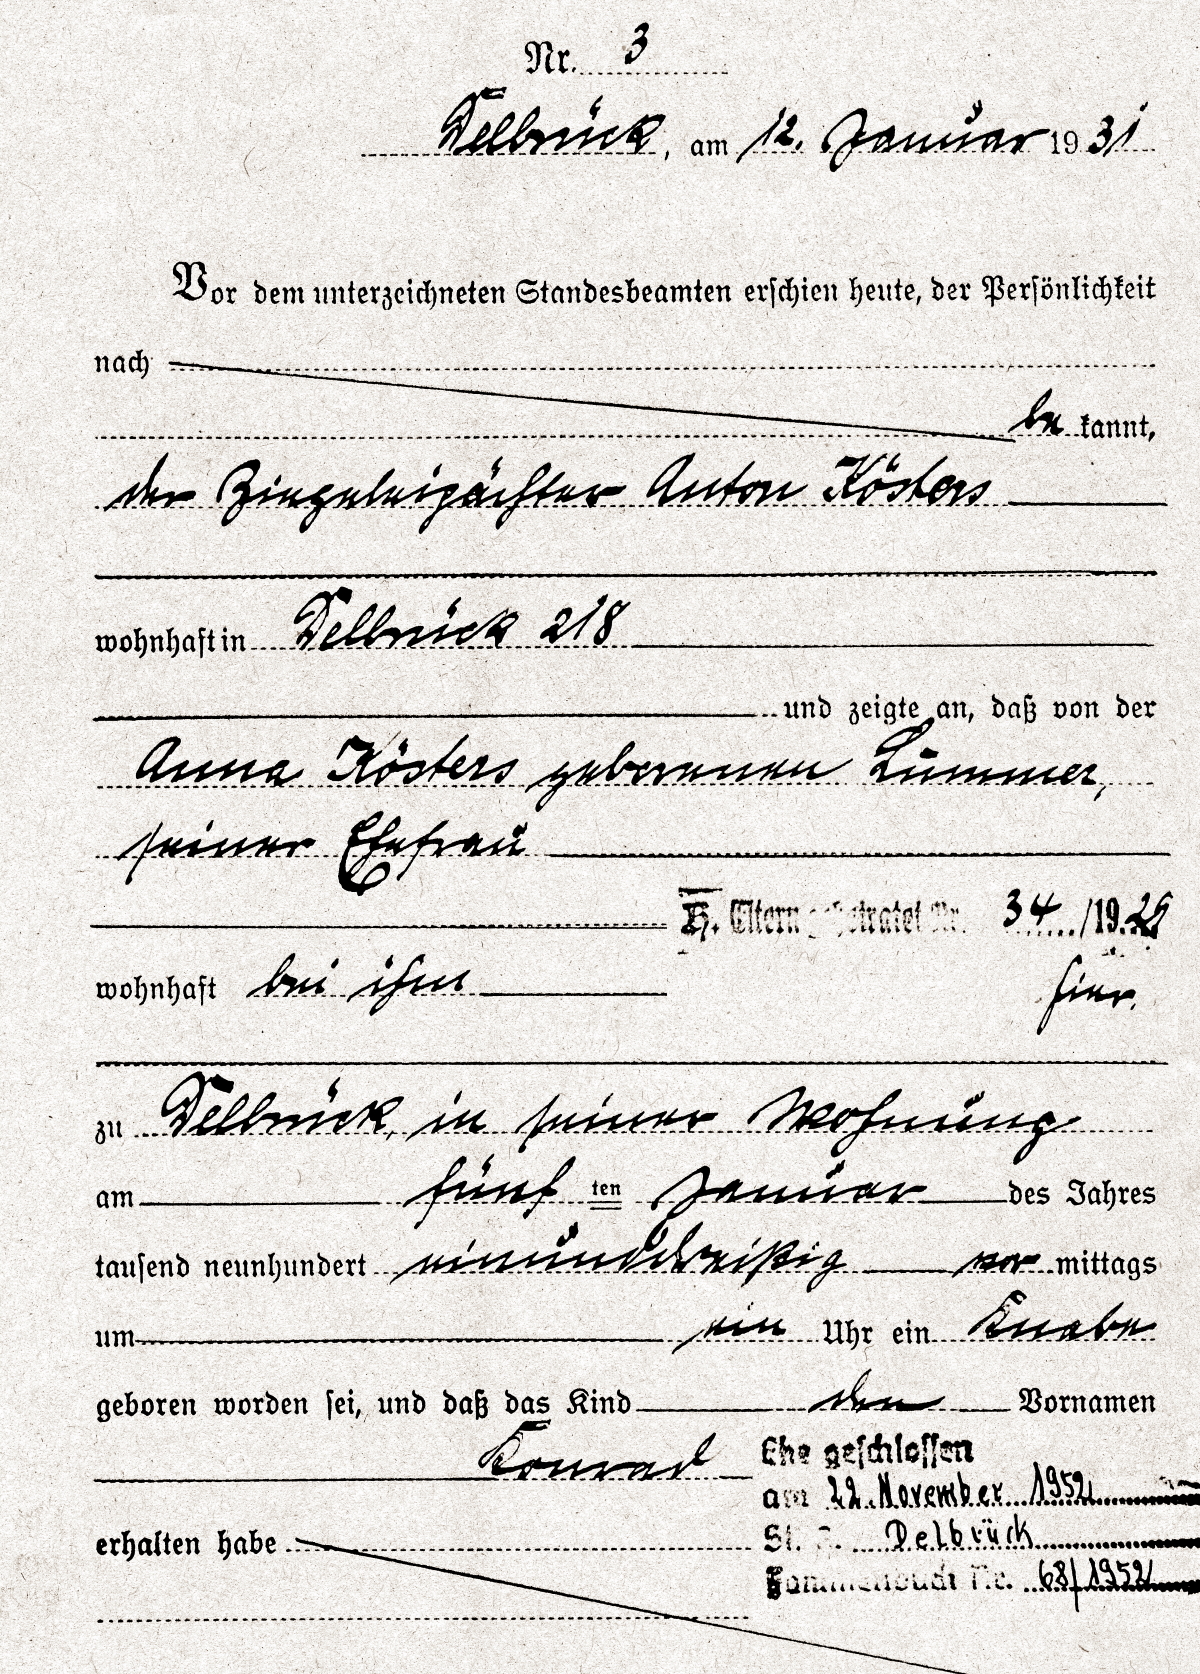 Nr. 3
Delbrück, am 12. Januar 1931
Vor dem unterzeichneten Standesbeamten erschien heute, der Persönlichkeit
nach
be kannt,
der Ziegeleipächter Anton Kösters
wohnhaft in Delbrück 218
und zeigte an, daß von der
Anna Kösters geborenen Lummer,
seiner Ehefrau
Eltern geheiratet Nr. 34 /19
wohnhaft bei ihm
hier.
zu Delbrück, in seiner Wohnung
am fünf ten Januar des Jahres
tausend neunhundert einunddreißig vor mittags
um ein Uhr ein Knabe
geboren worden sei, und daß das Kind den Vornamen
Konrad
Ehe geschlossen
am 22. November 1952
erhalten habe
St. Delbrück
Familienbuch Nr. 68/1952